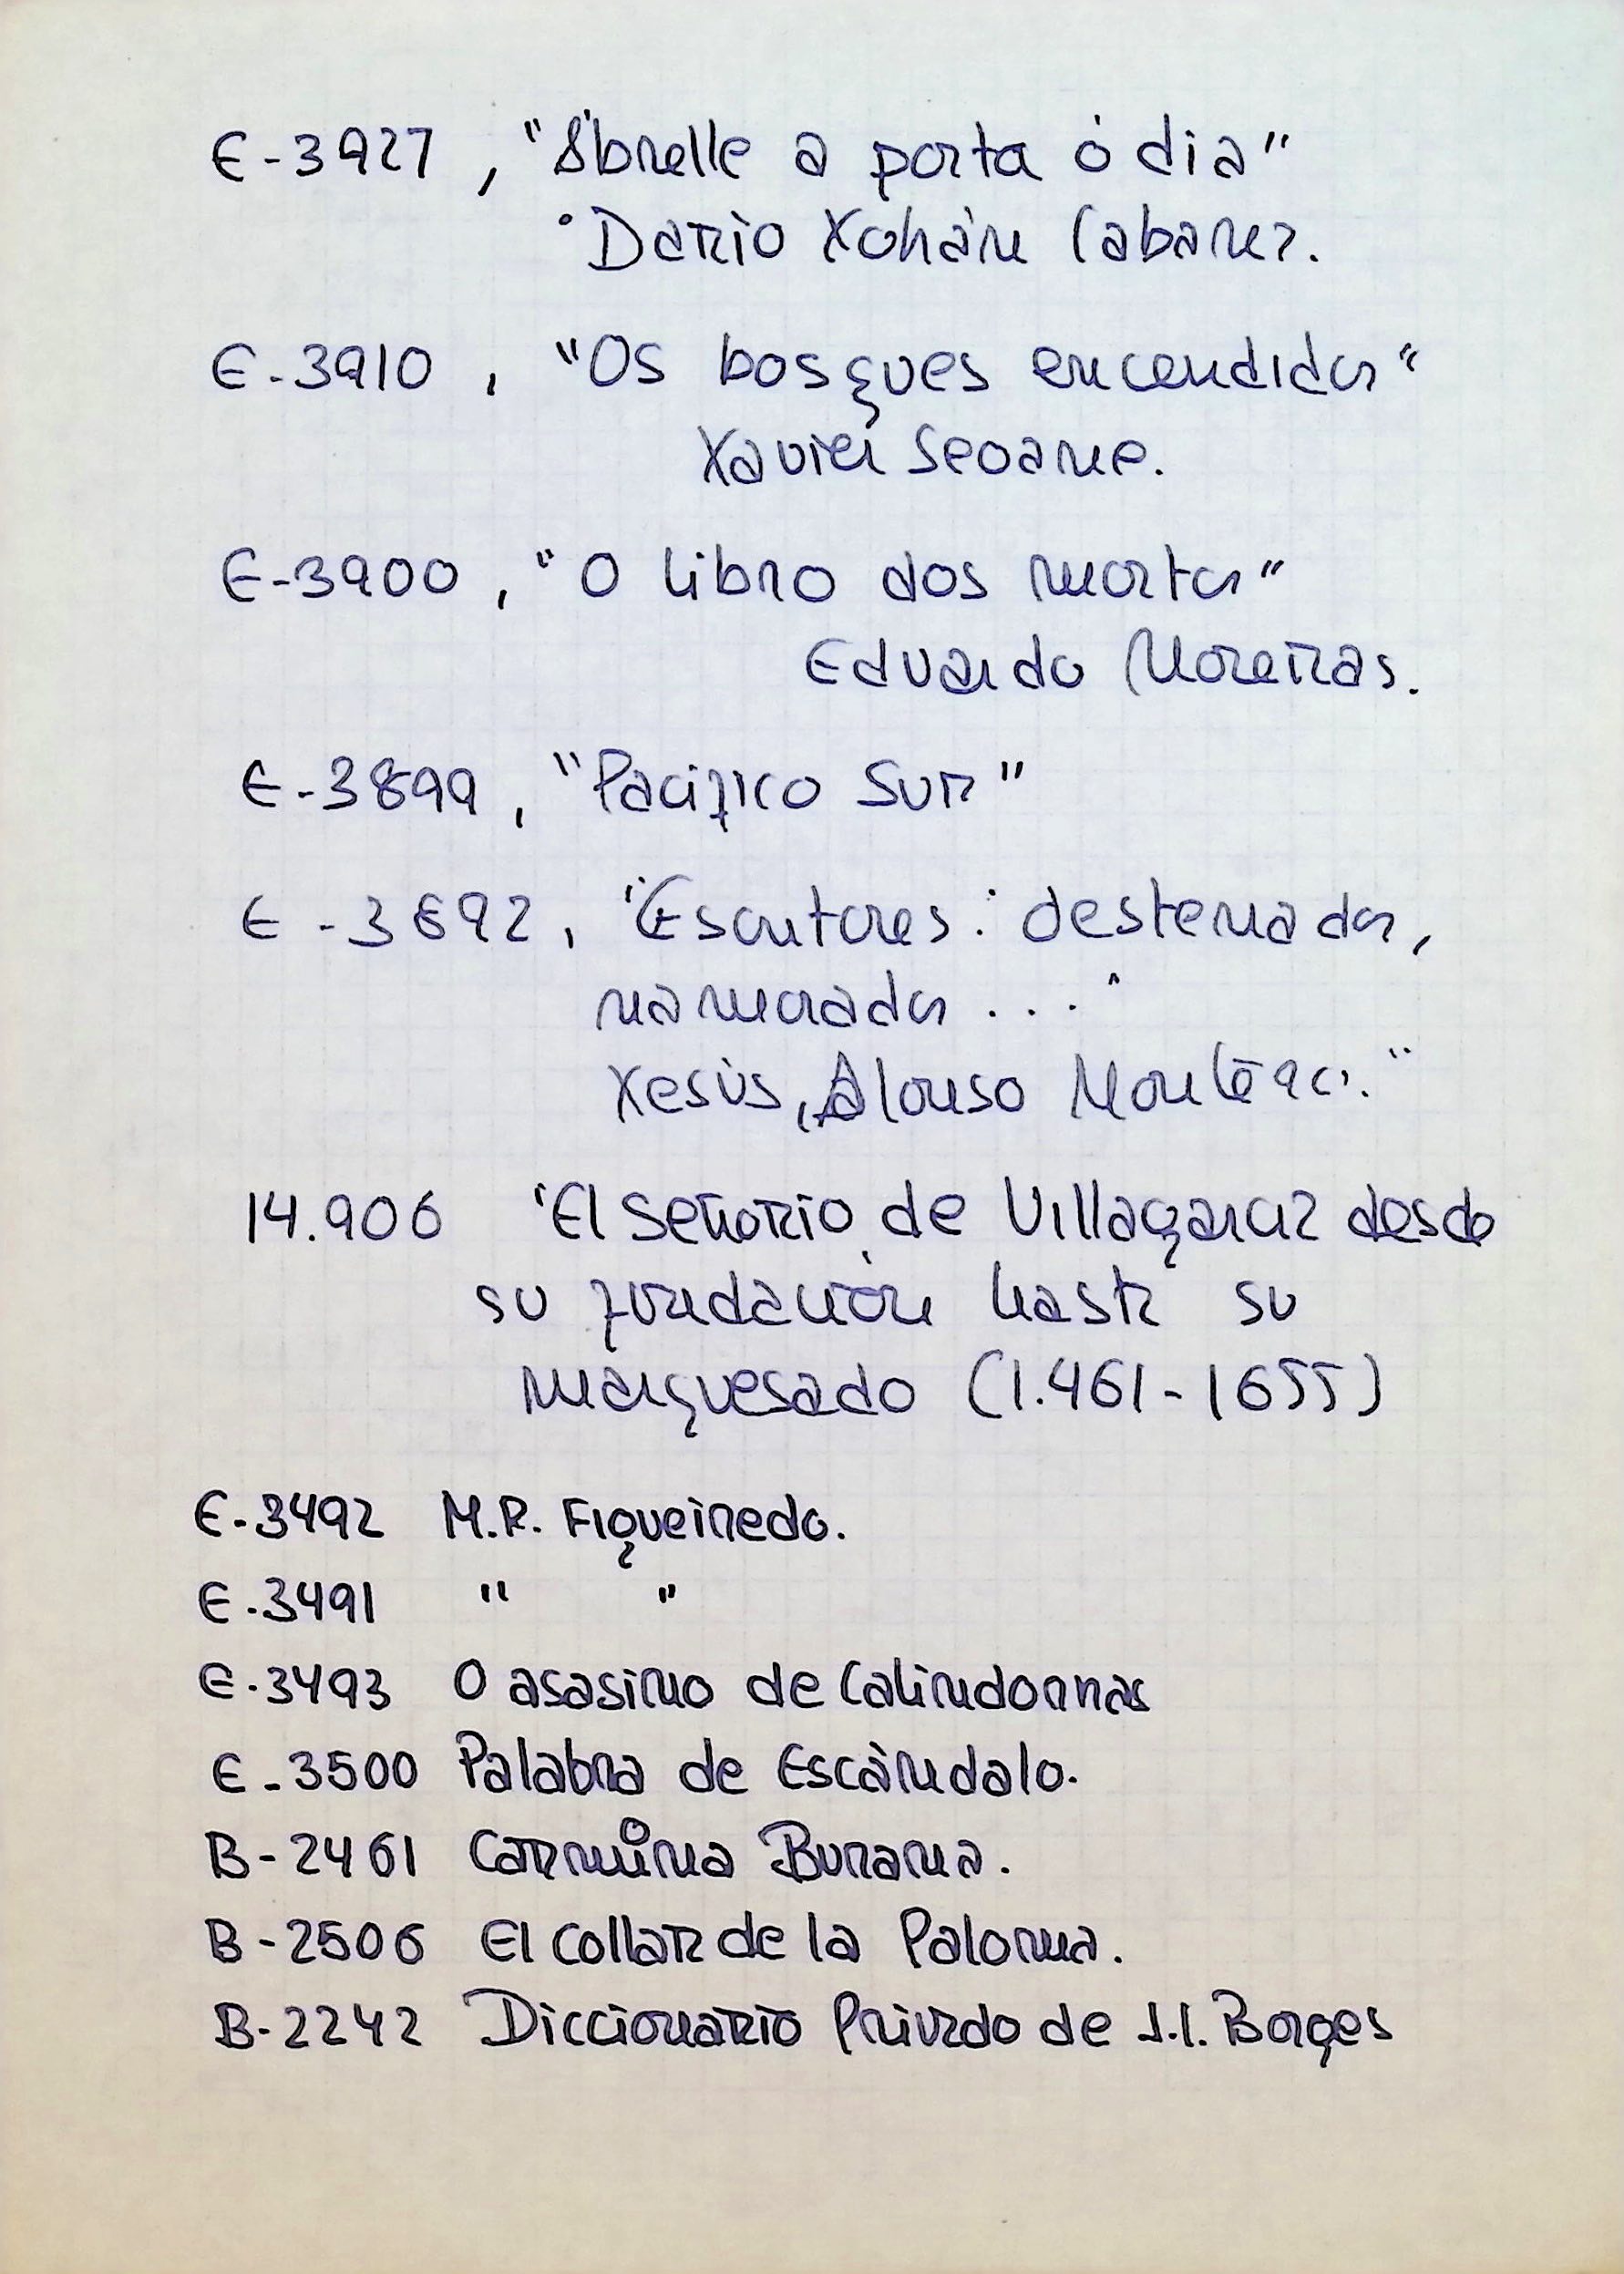 E-3927, "Ábrelle a porta ó dia"
Dario Xohán Cabanes.
E-3910, "Os bosques encendidos"
Xavier Seoane.
E-3900, "O libro dos mortos"
Eduardo Moreiras.
E-3899, "Pacifico Sur"
E-3892, "Escritores: desterrados,
namorados..."
Xesús, Alonso Montero."
14.906 "El Señorio de Villagarcia desde
su fundación hasta su
marquesado (1.461-1655)
E-3492 M.R. Figueiredo.
E-3491 " "
E-3493 O asasino de Calindorras
E-3500 Palabra de Escándalo.
B-2461 Carmina Burana.
B-2506 El Collar de la Paloma.
B-2242 Diccionario Privado de J.L. Borges